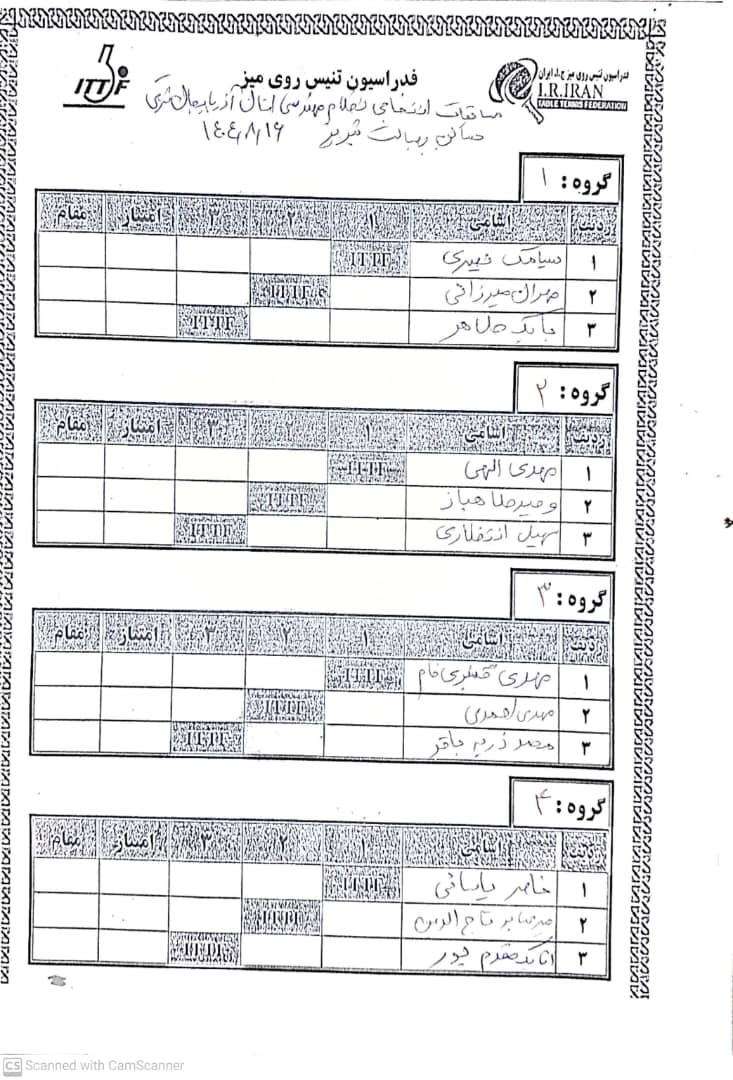 ITTF
فدراسیون تنیس روی میز
فدراسیون تنیس روی میز ج.ا. ایران
I.R.IRAN
TABLE TENNIS FEDERATION
مسابقات انتخابی نظام مهندسی استان آذربایجان شرقی
سالن رسالت تبریز ۱۴۰۴/۸/۱۶
گروه: ۱
ردیف اسامی ۱ ۲ ۳ امتیاز مقام
۱ سیامک ITTF
۲ مهران میرزائی ITTF
۳ بابک طاهر ITTF
گروه: ۲
ردیف اسامی ۱ ۲ ۳ امتیاز مقام
۱ مهدی الهی ITTF
۲ وحید شاهباز ITTF
۳ سهیل انتظاری ITTF
گروه: ۳
ردیف اسامی ۱ ۲ ۳ امتیاز مقام
۱ مهدی فام ITTF
۲ مهدی احمدی ITTF
۳ محمد ذریه باقر ITTF
گروه: ۴
ردیف اسامی ۱ ۲ ۳ امتیاز مقام
۱ ناصر بابائی ITTF
۲ تاج الدین ITTF
۳ اتابک مقدم پور ITTF
CS Scanned with CamScanner